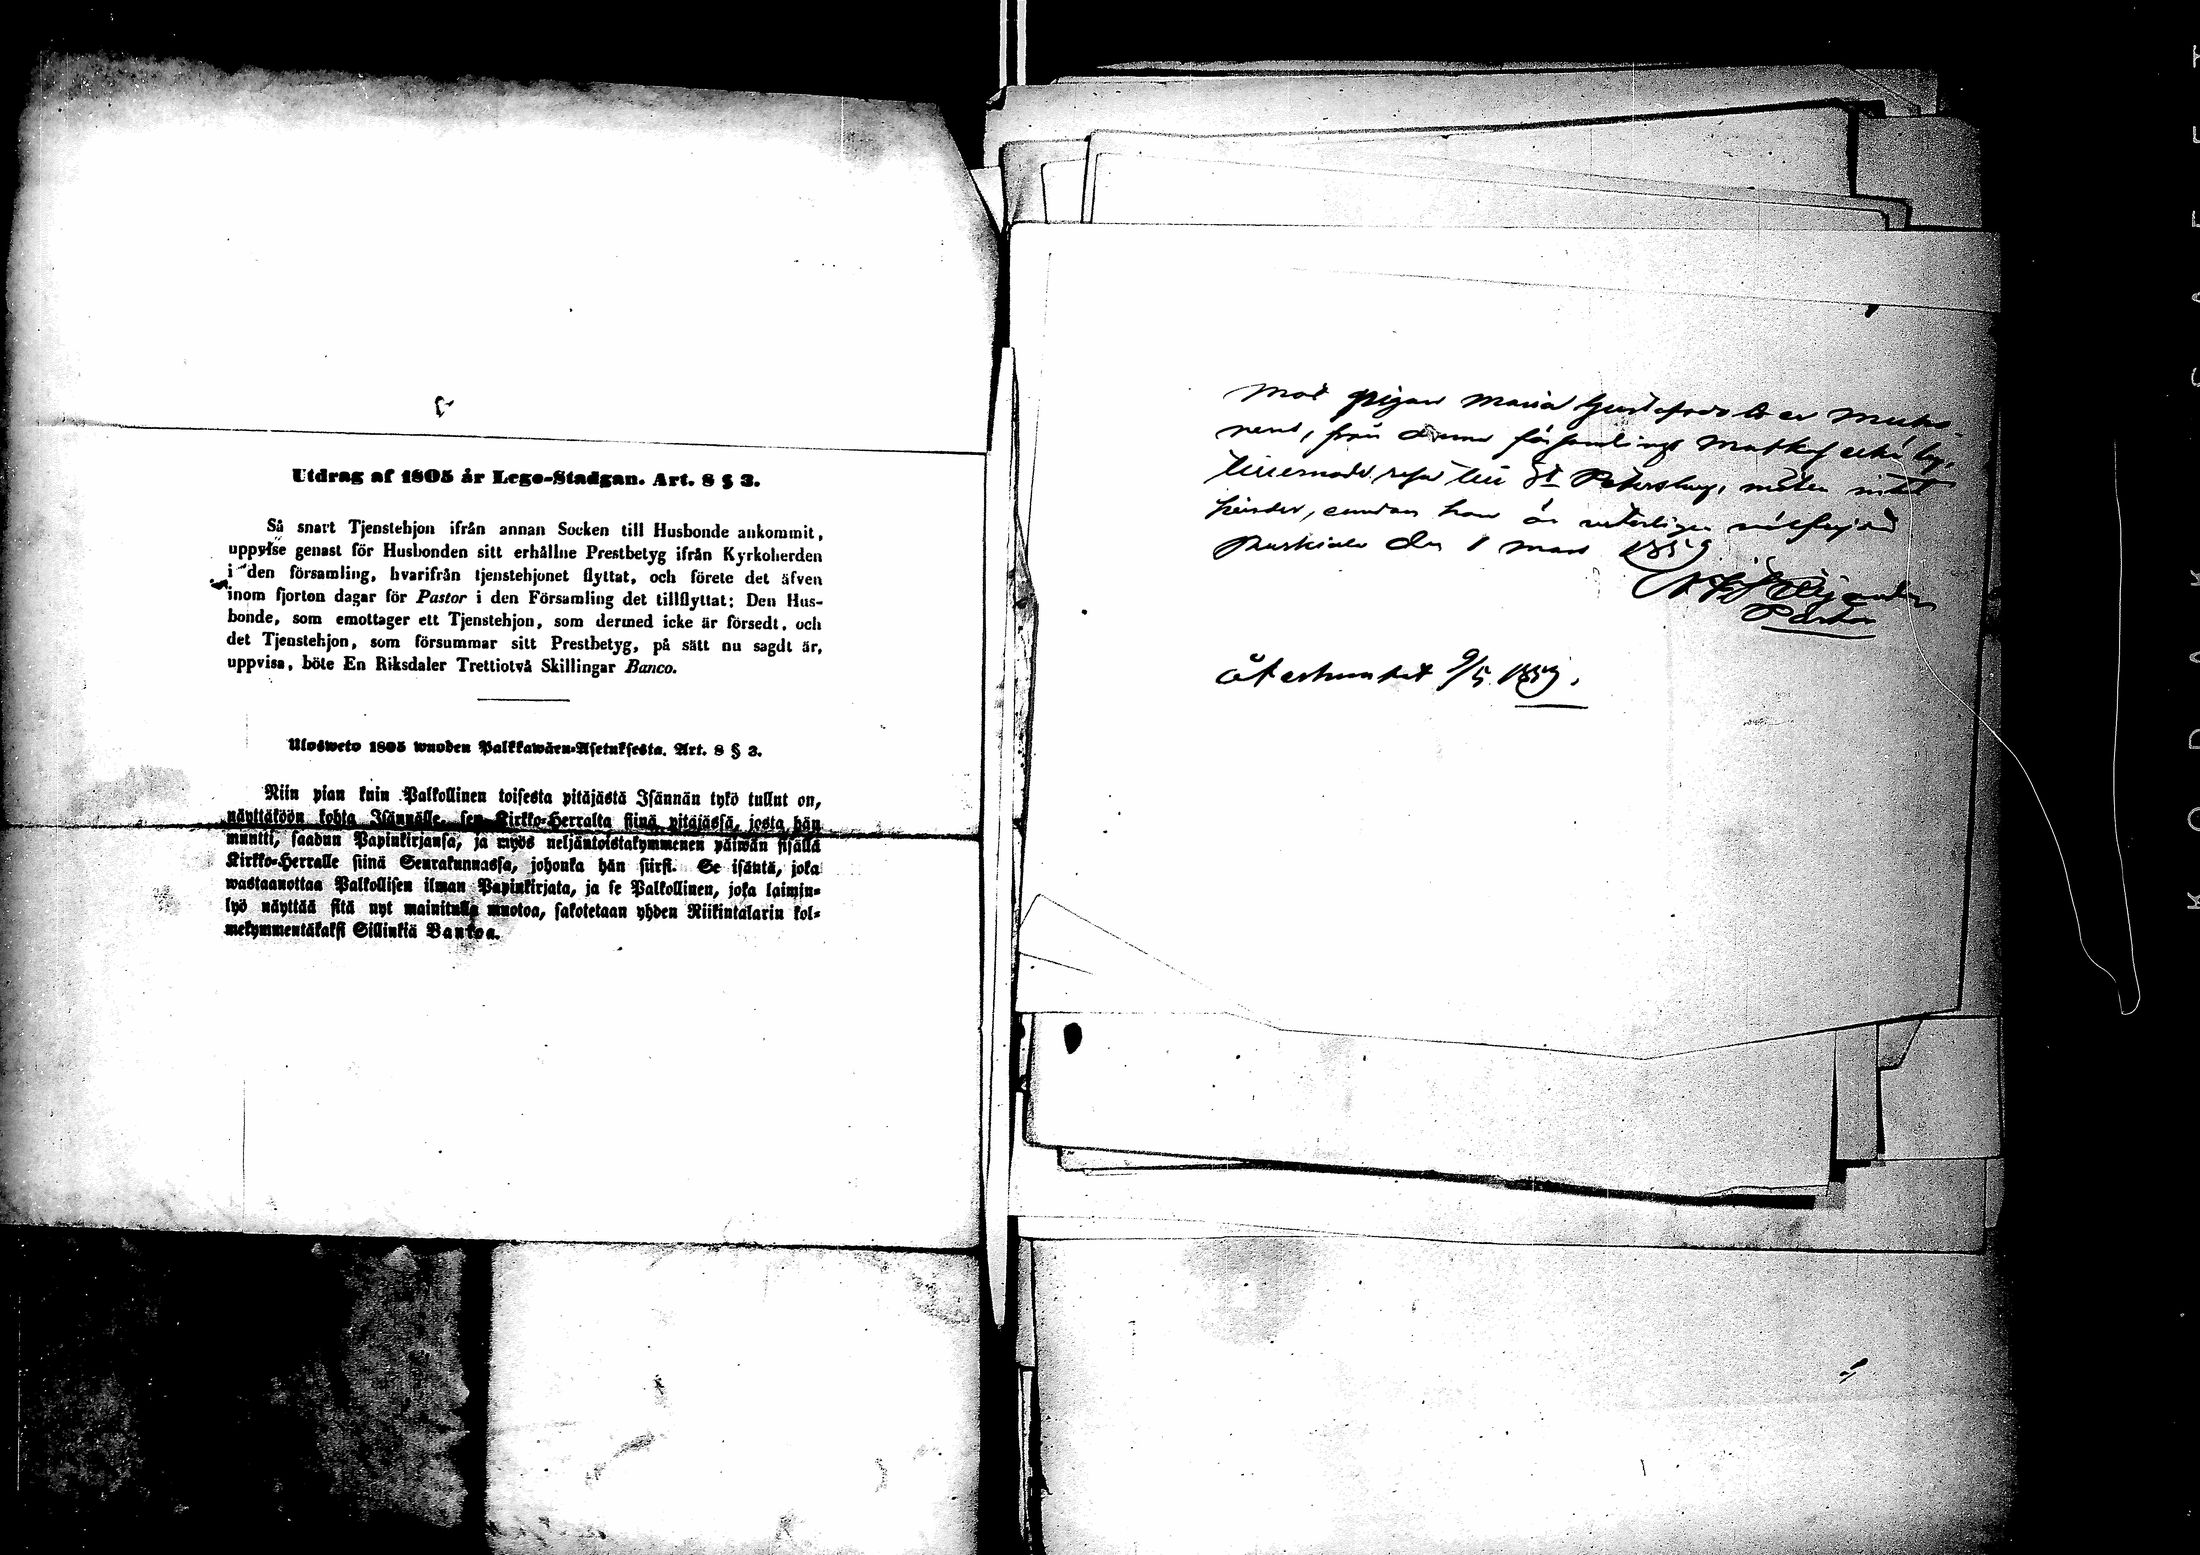 Utdrag af 1805 år Lego-Stadgan. Art. 8 § 3.
Så snart Tjenstehjon ifrån annan Socken till Husbonde ankommit,
uppvise genast för Husbonden sitt erhållne Prestbetyg ifrån Kyrkoherden
i den församling, hvarifrån tjenstehjonet flyttat, och förete det äfven
inom fjorton dagar för Pastor i den Församling det tillflyttat; Den Hus-
bonde, som emottager ett Tjenstehjon, som dermed icke är försedt, och
det Tjenstehjon, som försummar sitt Prestbetyg, på sätt nu sagdt är,
uppvisa, böte En Riksdaler Trettiotvå Skillingar Banco.
Ulosweto 1805 wuoden Palkkawäen-Asetuksesta. Art. 8 § 3.
Niin pian kuin Palkollinen toisesta pitäjästä Isännän tykö tullut on,
näyttäköön kohta Isännälle, sen Kirkko-Herralta siinä pitäjässä, josta hän
muutti, saadun Papinkirjansa, ja myös neljäntoistakymmenen päiwän sisällä
Kirkko-Herralle siinä Seurakunnassa, johonka hän siirsi. Se isäntä, joka
wastaanottaa Palkollisen ilman Papinkirjata, ja se Palkollinen, joka laimin-
lyö näyttää sitä nyt mainitulla muotoa, sakotetaan yhden Riikintalarin kol-
mekymmentäkaksi Sillinkiä Bankoa.
Mot pigan Maria Gustafsdotter
från denna församlings
resa till St Petersburg, möter intet
hinder, emedan hon är
den 1 mars 1859
Pastor
Återkommit 9/5 1859.
KODAK SAFETY